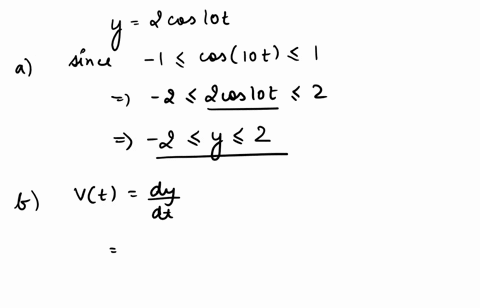 y = 2 cos 10t
a) since -1 ≤ cos(10t) ≤ 1
=> -2 ≤ 2cos 10t ≤ 2
=> -2 ≤ y ≤ 2
b) V(t) = dy/dt
=